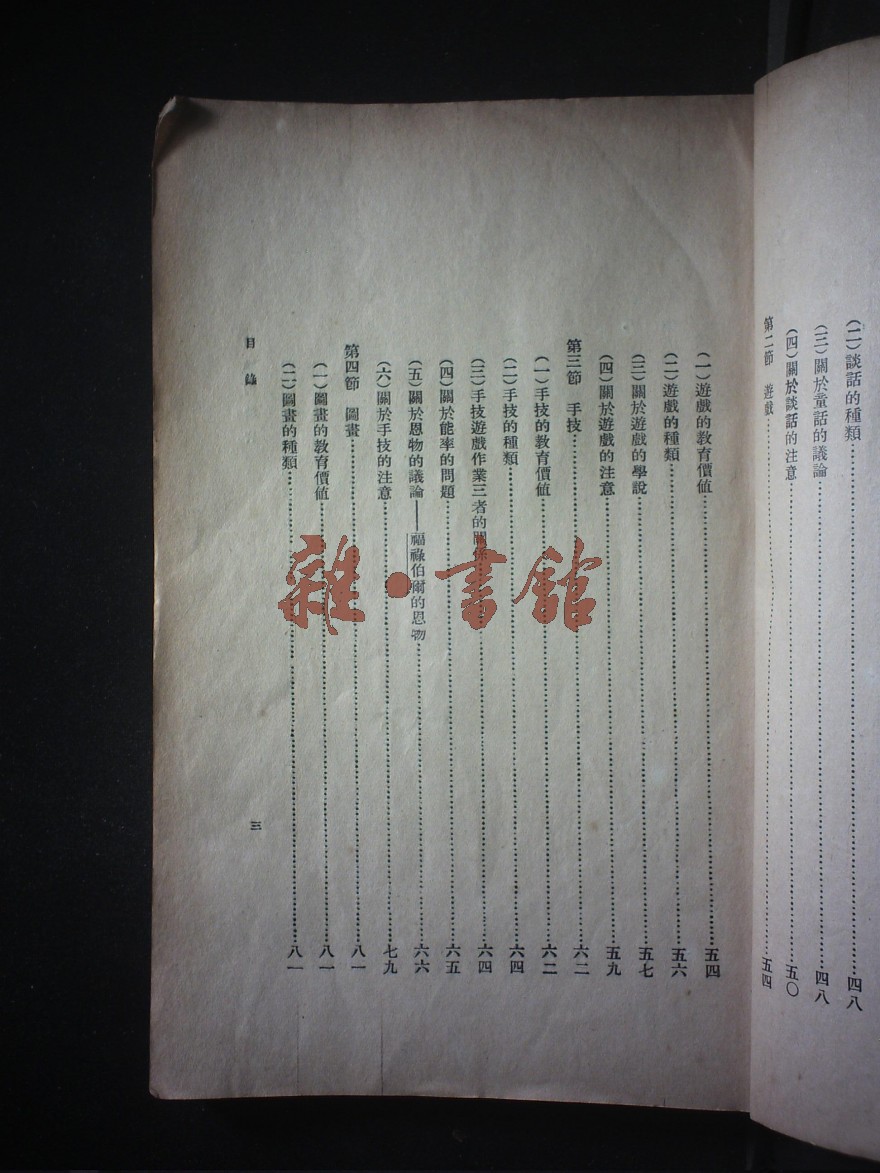 (二)談話的種類……四八
(三)關於童話的議論……四八
(四)關於談話的注意……五〇
第二節　遊戲……五四
(一)遊戲的教育價値……五四
(二)遊戲的種類……五六
(三)關於遊戲的學說……五七
(四)關於遊戲的注意……五九
第三節　手技……六二
(一)手技的教育價値……六二
(二)手技的種類……六四
(三)手技遊戲作業三者的關係……六四
(四)關於能率的問題……六五
(五)關於恩物的議論——福祿伯爾的恩物……六六
(六)關於手技的注意……七九
第四節　圖畫……八一
(一)圖畫的教育價値……八一
(二)圖畫的種類……八一
目錄
三
雜·書館